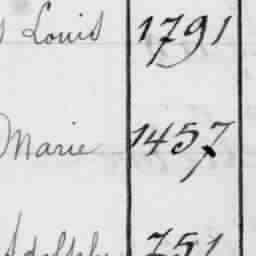 Louis 1791
Marie 1457
Adolphe 751